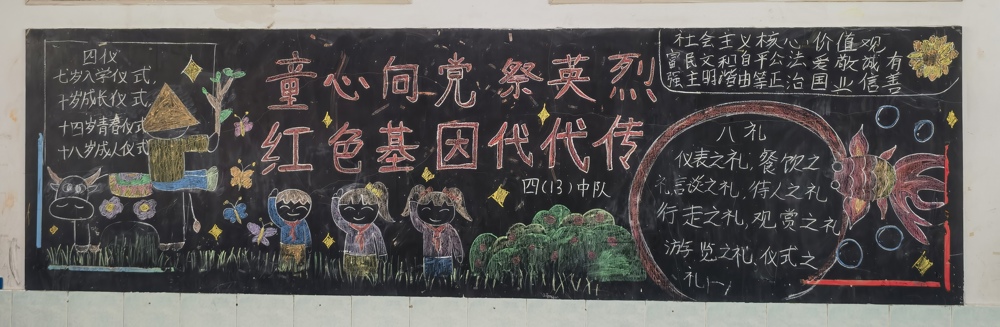 四仪
七岁入学仪式，
十岁成长仪式，
十四岁青春仪式
十八岁成人仪式
童心向党 祭英烈
红色基因代代传
四(13)中队
社会主义核心价值观
富民文和自平公法爱敬诚有
强主明谐由等正治国业信善
八礼
仪表之礼，餐饮之
礼言谈之礼，待人之礼
行走之礼，观赏之礼
游览之礼，仪式之
礼